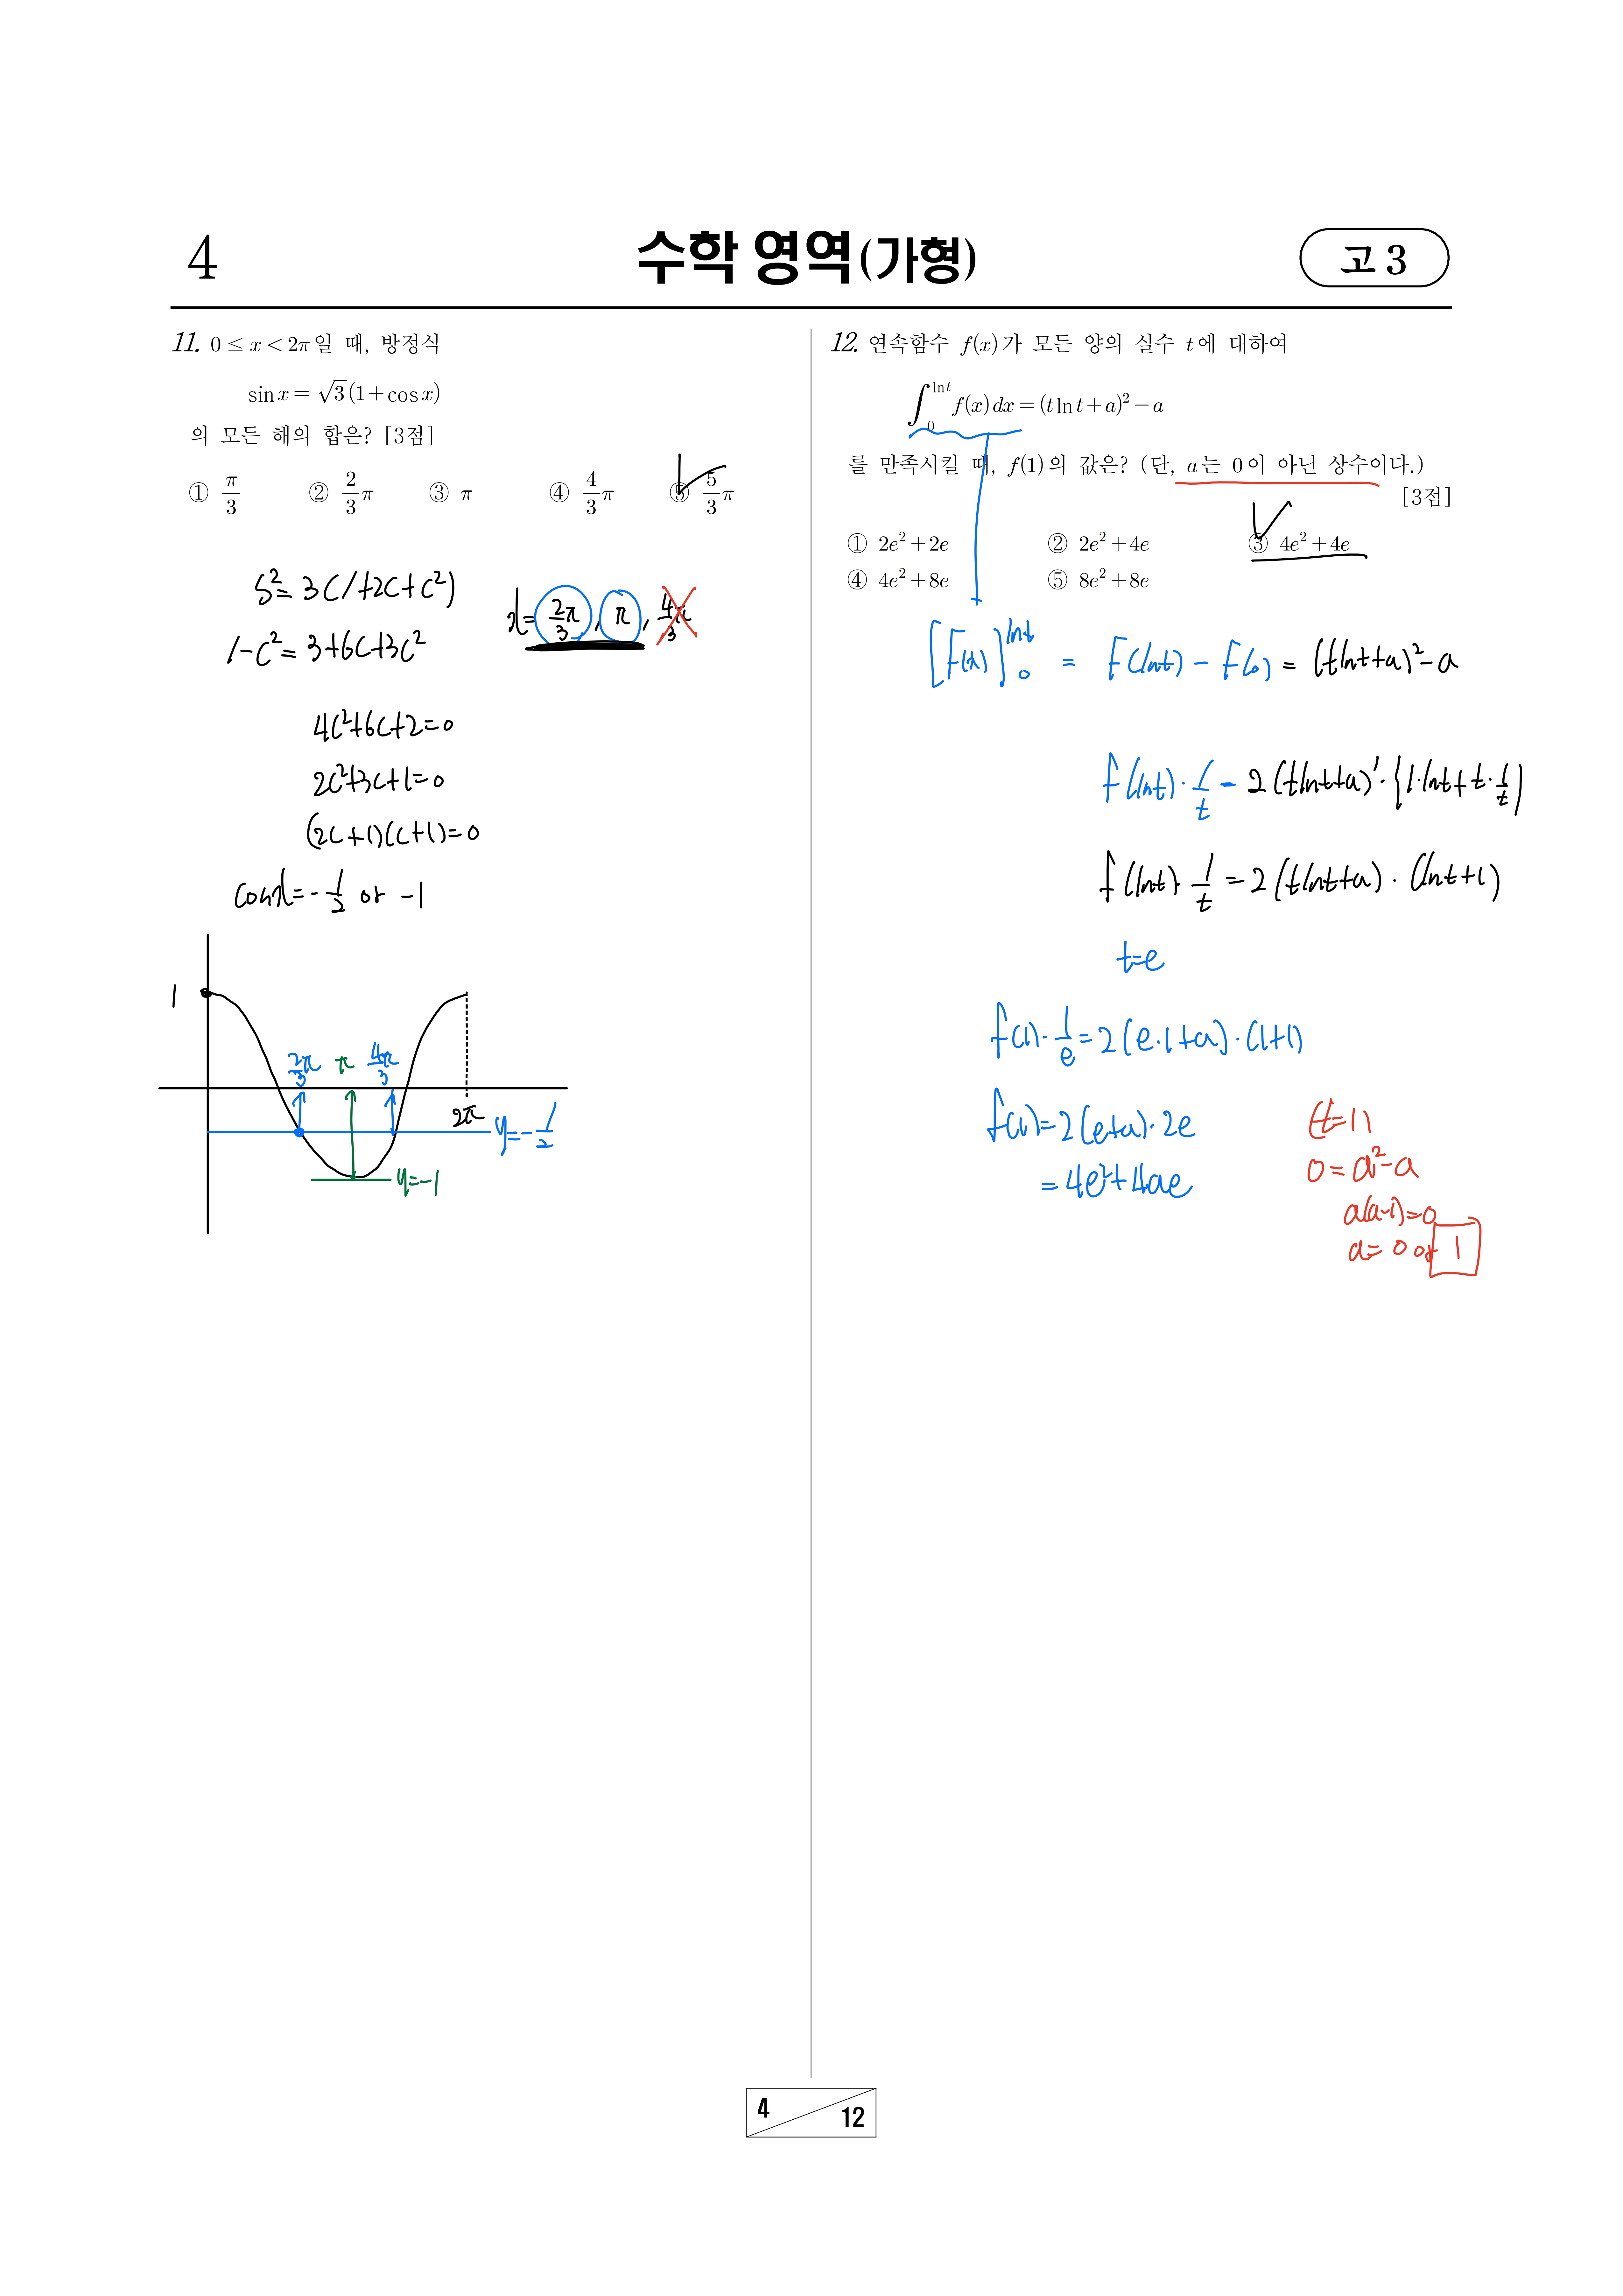 4
수학 영역(가형)
고 3
11. 0 ≤ x < 2π일 때, 방정식
sin x = √3(1+cos x)
의 모든 해의 합은? [3점]
① π/3 ② 2/3 π ③ π ④ 4/3 π ⑤ 5/3 π
S² = 3(1+2C+C²)
1-C² = 3+6C+3C²
x = 2π/3, π, 4/3 π
4C²+6C+2=0
2C²+3C+1=0
(2C+1)(C+1)=0
cos x = -1/2 or -1
1
2π/3 π 4π/3
2π
y=-1/2
y=-1
12. 연속함수 f(x)가 모든 양의 실수 t에 대하여
∫₀^{ln t} f(x)dx = (t ln t + a)² - a
를 만족시킬 때, f(1)의 값은? (단, a는 0이 아닌 상수이다.)
[3점]
① 2e²+2e ② 2e²+4e ③ 4e²+4e
④ 4e²+8e ⑤ 8e²+8e
[F(x)]₀^{ln t} = F(ln t) - F(0) = (t ln t + a)² - a
f(ln t)·1/t = 2(t ln t + a)¹·{1·ln t + t·1/t}
f(ln t)·1/t = 2(t ln t + a)·(ln t + 1)
t=e
f(1)·1/e = 2(e·1+a)·(1+1)
f(1) = 2(e+a)·2e
= 4e²+4ae
(t=1)
0 = a²-a
a(a-1)=0
a = 0 or 1
4
12